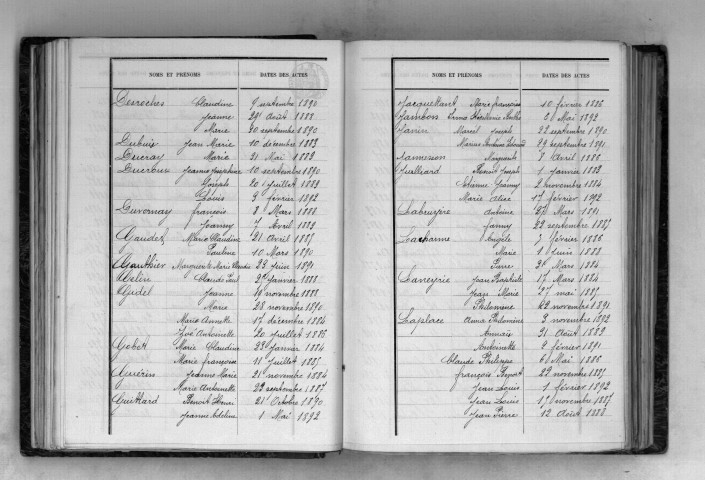 NOMS ET PRÉNOMS DATES DES ACTES
Desroches Claudine 9 septembre 1890
Jeanne 29 Août 1888
Marie 20 septembre 1890
Dubuis Jean Marie 10 décembre 1883
Ducray Marie 31 Mai 1889
Ducroux Jeanne Joséphine 10 septembre 1890
Joseph 20 Juillet 1889
Louis 9 février 1892
Duvernay françois 8 Mars 1888
Joanny 7 Avril 1889
Gaudet Marie Claudine 21 Avril 1887
Pauline 10 Mars 1890
Gauthier Marguerite Marie Claudia 23 Juin 1891
Claude Paul Janvier 1888
Jeanne 19 novembre 1888
Marie 28 novembre 1890
Marie Annette 17 décembre 1884
Zoé Antoinette 20 Juillet 1886
Gobet Marie Claudine 23 Janvier 1884
Marie françoise 11 Juillet 1885
Guérin Jeanne Marie 21 novembre 1884
Marie Antoinette 29 septembre 1887
Guillard Benoit Henri 21 Octobre 1890
Jeanne Adeline 1 Mai 1892
NOMS ET PRÉNOMS DATES DES ACTES
Marie françoise 10 février 1886
Jambon 6 Mai 1892
Janin Marcel Joseph 22 septembre 1890
Marius 29 septembre 1891
Marguerite 8 Avril 1886
Joseph 1 Janvier 1888
Jeanny 2 novembre 1884
Marie Alice 17 février 1892
Labruyère Antoine 27 Mars 1891
Jenny 22 septembre 1887
Lacharme Angèle 7 février 1886
Marie 1 Juin 1888
Pierre 24 Mars 1884
Laveyrie Jean Baptiste 17 Mars 1884
Jean Marie 27 mai 1887
Philomène 22 novembre 1891
Laplace Anna Philomène 3 novembre 1892
21 Août 1889
Antoinette 2 février 1891
Claude Philippe 6 Mai 1886
françois Benoit 29 novembre 1885
Jean Louis 1 février 1892
Jean Louis 17 novembre 1887
Jean Pierre 12 Août 1888